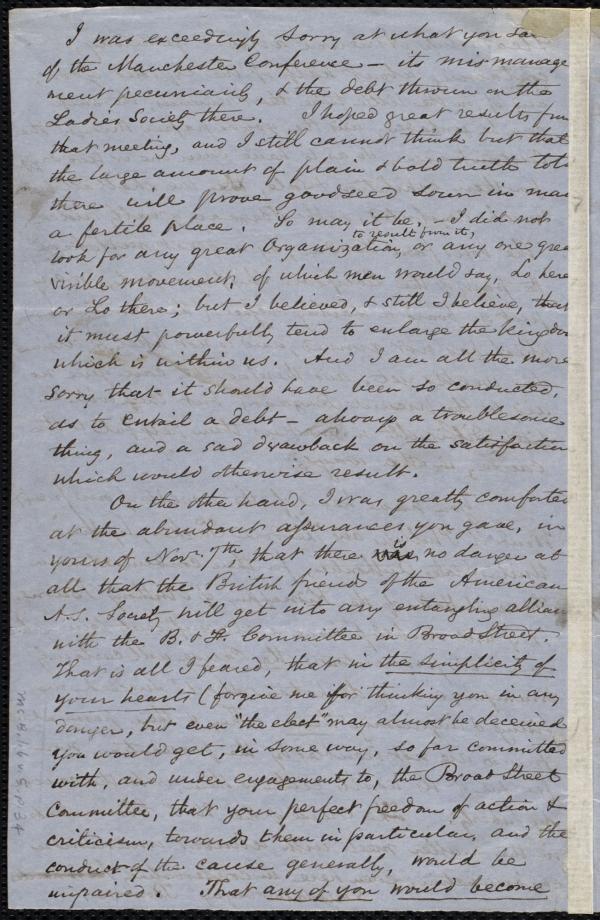 I was exceedingly sorry at what you sa
of the Manchester Conference – its mismanage
ment pecuniarily, & the debt thrown on the
Ladies Society there. I hoped great results from
that meeting, and I still cannot think but that
the large amount of plain & bold truth told
there will prove good seed sown in many
a fertile place. So may it be. – I did not
to result from it,
look for any great Organization, or any one great
visible movement, of which men would say, Lo here
or Lo there; but I believed, & still I believe, that
it must powerfully tend to enlarge the kingdom
which is within us. And I am all the more
sorry that it should have been so conducted,
as to entail a debt – always a troublesome
thing, and a sad drawback on the satisfaction
which would otherwise result.
On the other hand, I was greatly comforted
at the abundant assurances you gave, in
yours of Nov. 7th, that there is no danger at
all that the British friends of the American
A.S. Society will get into any entangling allian
with the B. & F. Committee in Broad Street.
That is all I feared, that in the simplicity of
your hearts (forgive me for thinking you in any
danger, but even "the elect" may almost be deceived
you would get, in some way, so far committed
with, and under engagements to, the Broad Street
Committee, that your perfect freedom of action &
criticism, towards them in particular, and the
conduct of the cause generally, would be
impaired. That any of you would become
Ms.B.1.6 v.5, p.34